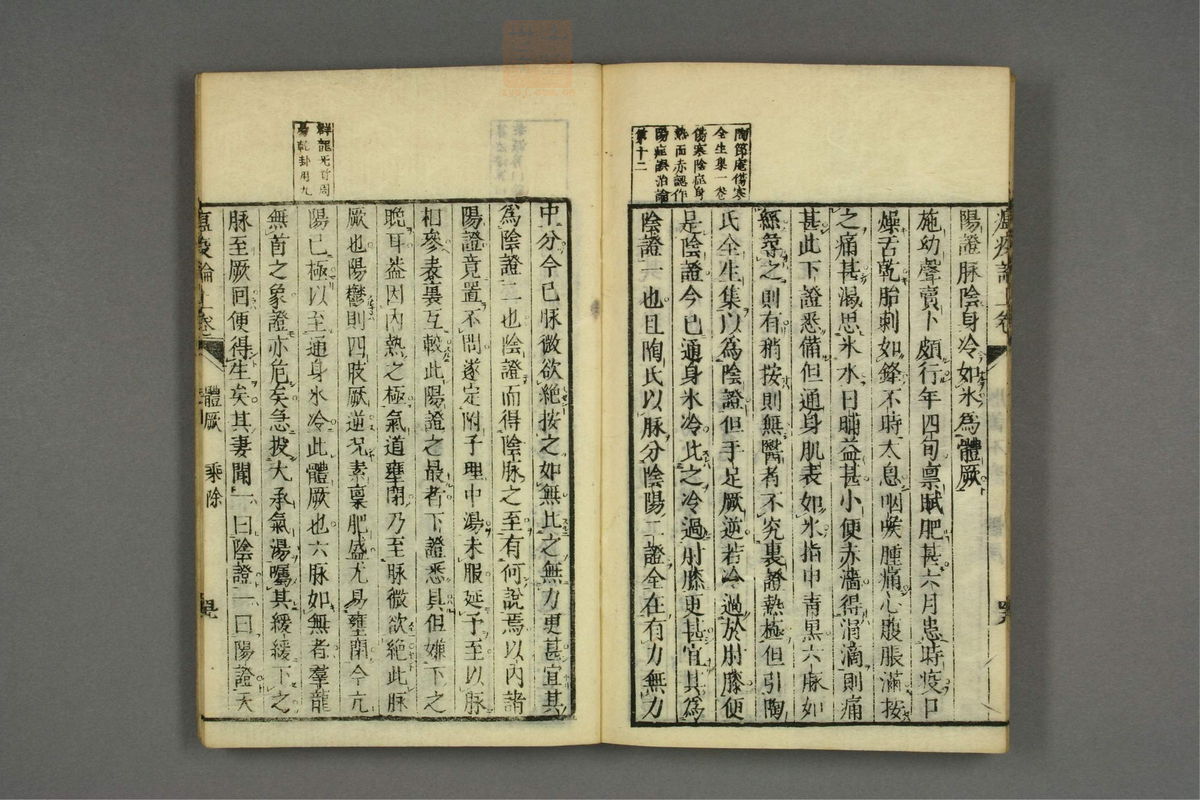 陶節庵傷寒
全生集一卷
傷寒陰症身
熱面赤認作
陽症誤治論
第十二
陽證脉陰身冷如氷爲體厥
施幼聲賣卜頗行年四旬禀賦肥甚六月患時疫口
燥舌乾胎刺如鋒不時太息咽喉腫痛心腹脹滿按
之痛甚渴思氷水日晡益甚小便赤濇得涓滴則痛
甚此下證悉備但通身肌表如氷指甲青黑六脉如
絲尋之則有稍按則無醫者不究裏證熱極但引陶
氏全生集以爲陰證但手足厥逆若冷過於肘膝便
是陰證今已通身氷冷比之冷過肘膝更甚宜其爲
陰證一也且陶氏以脉分陰陽二證全在有力無力
中分今已脉微欲絶按之如無比之無力更甚宜其
爲陰證二也陰證而得陰脉之至有何説焉以内諸
陽證竟置不問遂定附子理中湯未服延予至以脉
相參表裏互較此陽證之最者下證悉具但嫌下之
晩耳葢因内熱之極氣道壅閉乃至脉微欲絶此脉
厥也陽鬱則四肢厥逆况素禀肥盛尤易壅閉今亢
陽已極以至通身氷冷此體厥也六脉如無者羣龍
無首之象證亦危矣急投大承氣湯囑其緩緩下之
脉至厥回便得生矣其妻聞一曰陰證一曰陽證天
群龍无首周
易乾卦用九
體厥
乘除